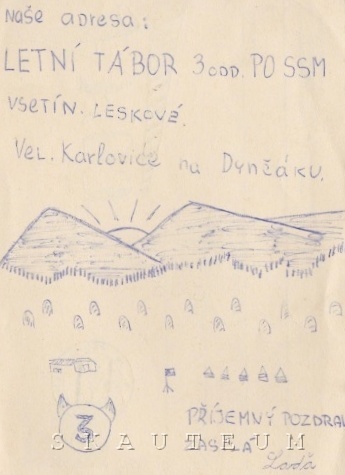 Naše adresa:
LETNÍ TÁBOR 3 ODD. PO SSM
VSETÍN. LESKOVÉ.
Vel. Karlovice na Dynčáku.
3
PŘÍJEMNÝ POZDRAV
ZASÍLÁ
Laďa
SKAUTEUM